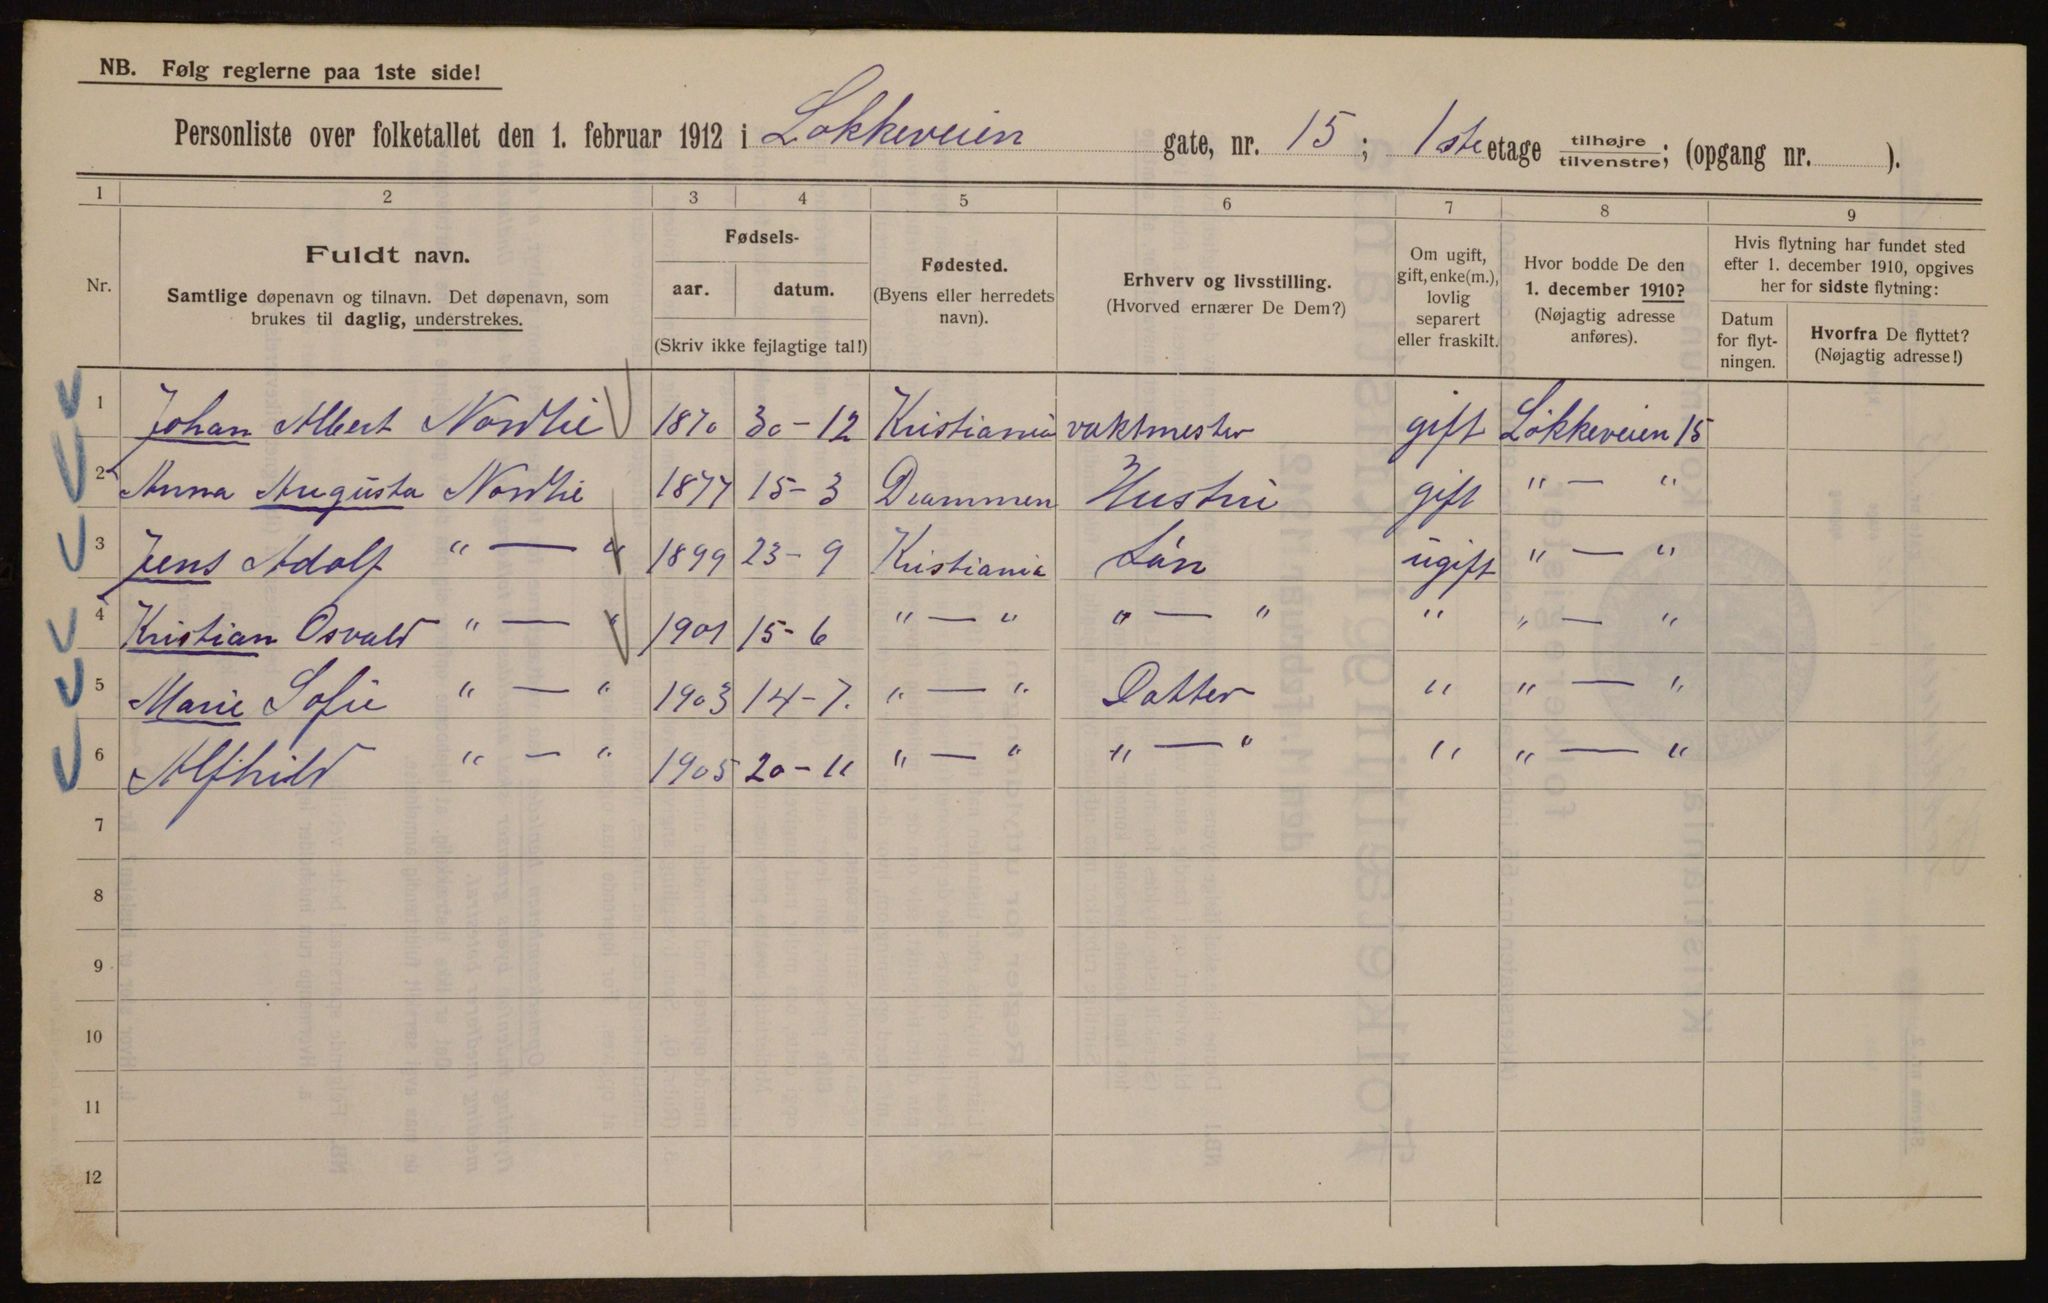 NB. Følg reglerne paa 1ste side!
Personliste over folketallet den 1. februar 1912 i Løkkeveien gate, nr. 15 ; 1ste etage tilhøjre / tilvenstre; (opgang nr. ).
1 2 3 4 5 6 7 8 9
Nr.
Fuldt navn.
Samtlige døpenavn og tilnavn. Det døpenavn, som
brukes til daglig, understrekes.
Fødsels-
aar. datum.
(Skriv ikke fejlagtige tal!)
Fødested.
(Byens eller herredets
navn).
Erhverv og livsstilling.
(Hvorved ernærer De Dem?)
Om ugift,
gift, enke(m.),
lovlig
separert
eller fraskilt.
Hvor bodde De den
1. december 1910?
(Nøjagtig adresse
anføres).
Hvis flytning har fundet sted
efter 1. december 1910, opgives
her for sidste flytning:
Datum
for flyt-
ningen.
Hvorfra De flyttet?
(Nøjagtig adresse!)
1 Johan Albert Nordlie 1870 30-12 Kristiania vaktmester gift Løkkeveien 15
2 Anna Augusta Nordlie 1877 15-3 Drammen Hustru gift " — "
3 Jens Adolf " — " 1899 23-9 Kristiania Søn ugift " — "
4 Kristian Osvald " — " 1901 15-6 " — " " — " " " — "
5 Marie Sofie " — " 1903 14-7. " — " Datter " " — "
6 Alfhild " — " 1905 20-11 " — " " — " " " — "
7
8
9
10
11
12